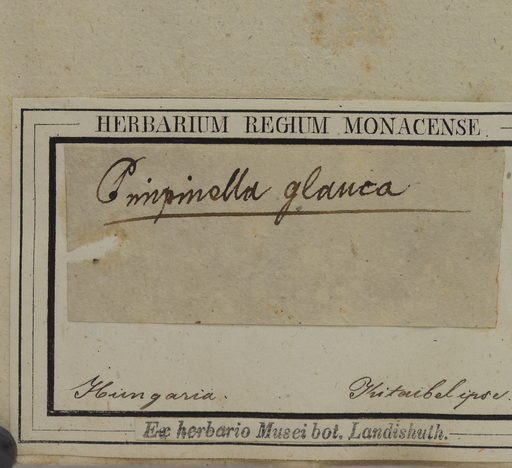 HERBARIUM REGIUM MONACENSE.
Pimpinella glauca
Hungaria. Kitaibel ipse.
Ex herbario Musei bot. Landishuth.